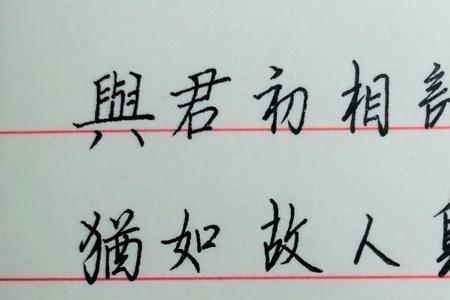 與君初相
猶如故人